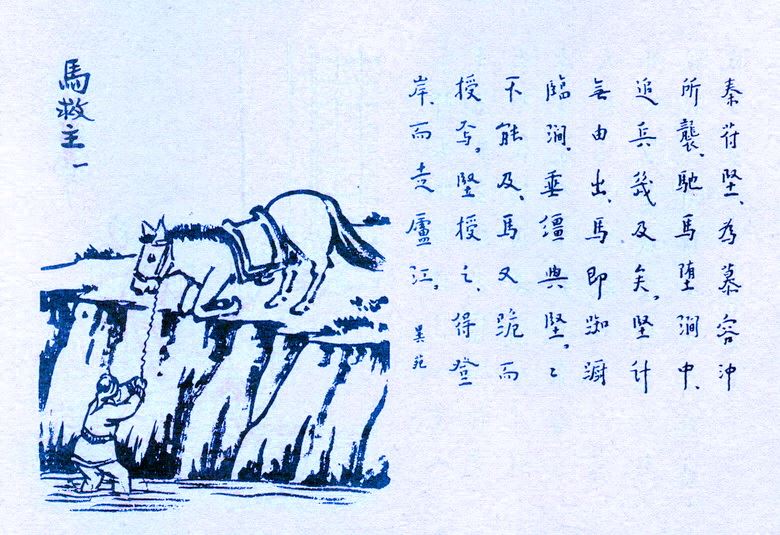 馬救主 一
秦苻堅、為慕容沖
所襲、馳馬堕澗中、
追兵幾及矣。堅計
無由出、馬即踟躕
臨澗、垂繮與堅。〻
不能及、馬又跪而
授焉。堅援之、得登
岸、而走廬江。
異苑